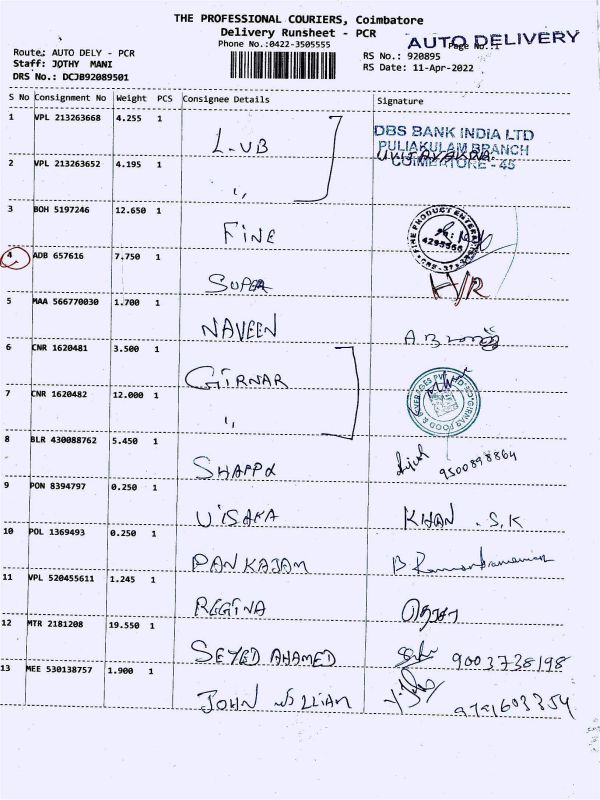 THE PROFESSIONAL COURIERS, Coimbatore
Delivery Runsheet - PCR
Phone No.:0422-3505555
AUTO DELIVERY
Page No.:1
Route: AUTO DELY - PCR
Staff: JOTHY MANI
DRS No.: DCJB92089501
RS No.: 920895
RS Date: 11-Apr-2022
S No Consignment No Weight PCS Consignee Details Signature
1 VPL 213263668 4.255 1 L-VB
DBS BANK INDIA LTD
PULIAKULAM BRANCH
COIMBATORE - 45
2 VPL 213263652 4.195 1 "
3 BOH 5197246 12.650 1 FINE
FINE PRODUCT
4 ADB 657616 7.750 1 SUPER H/R
5 MAA 566770030 1.700 1 NAVEEN
6 CNR 1620481 3.500 1 GIRNAR
7 CNR 1620482 12.000 1 "
GIRNAR FOOD & BEVERAGES PVT LTD
8 BLR 430088762 5.450 1 SHAPPA 9500898864
9 PON 8394797 0.250 1 VISAKA KHAN .S.K
10 POL 1369493 0.250 1 PANKAJAM
11 VPL 520455611 1.245 1 REGINA
12 MTR 2181208 19.550 1 SEYED AHAMED 9003738198
13 MEE 530138757 1.900 1 JOHN WILLIAM 9791603354